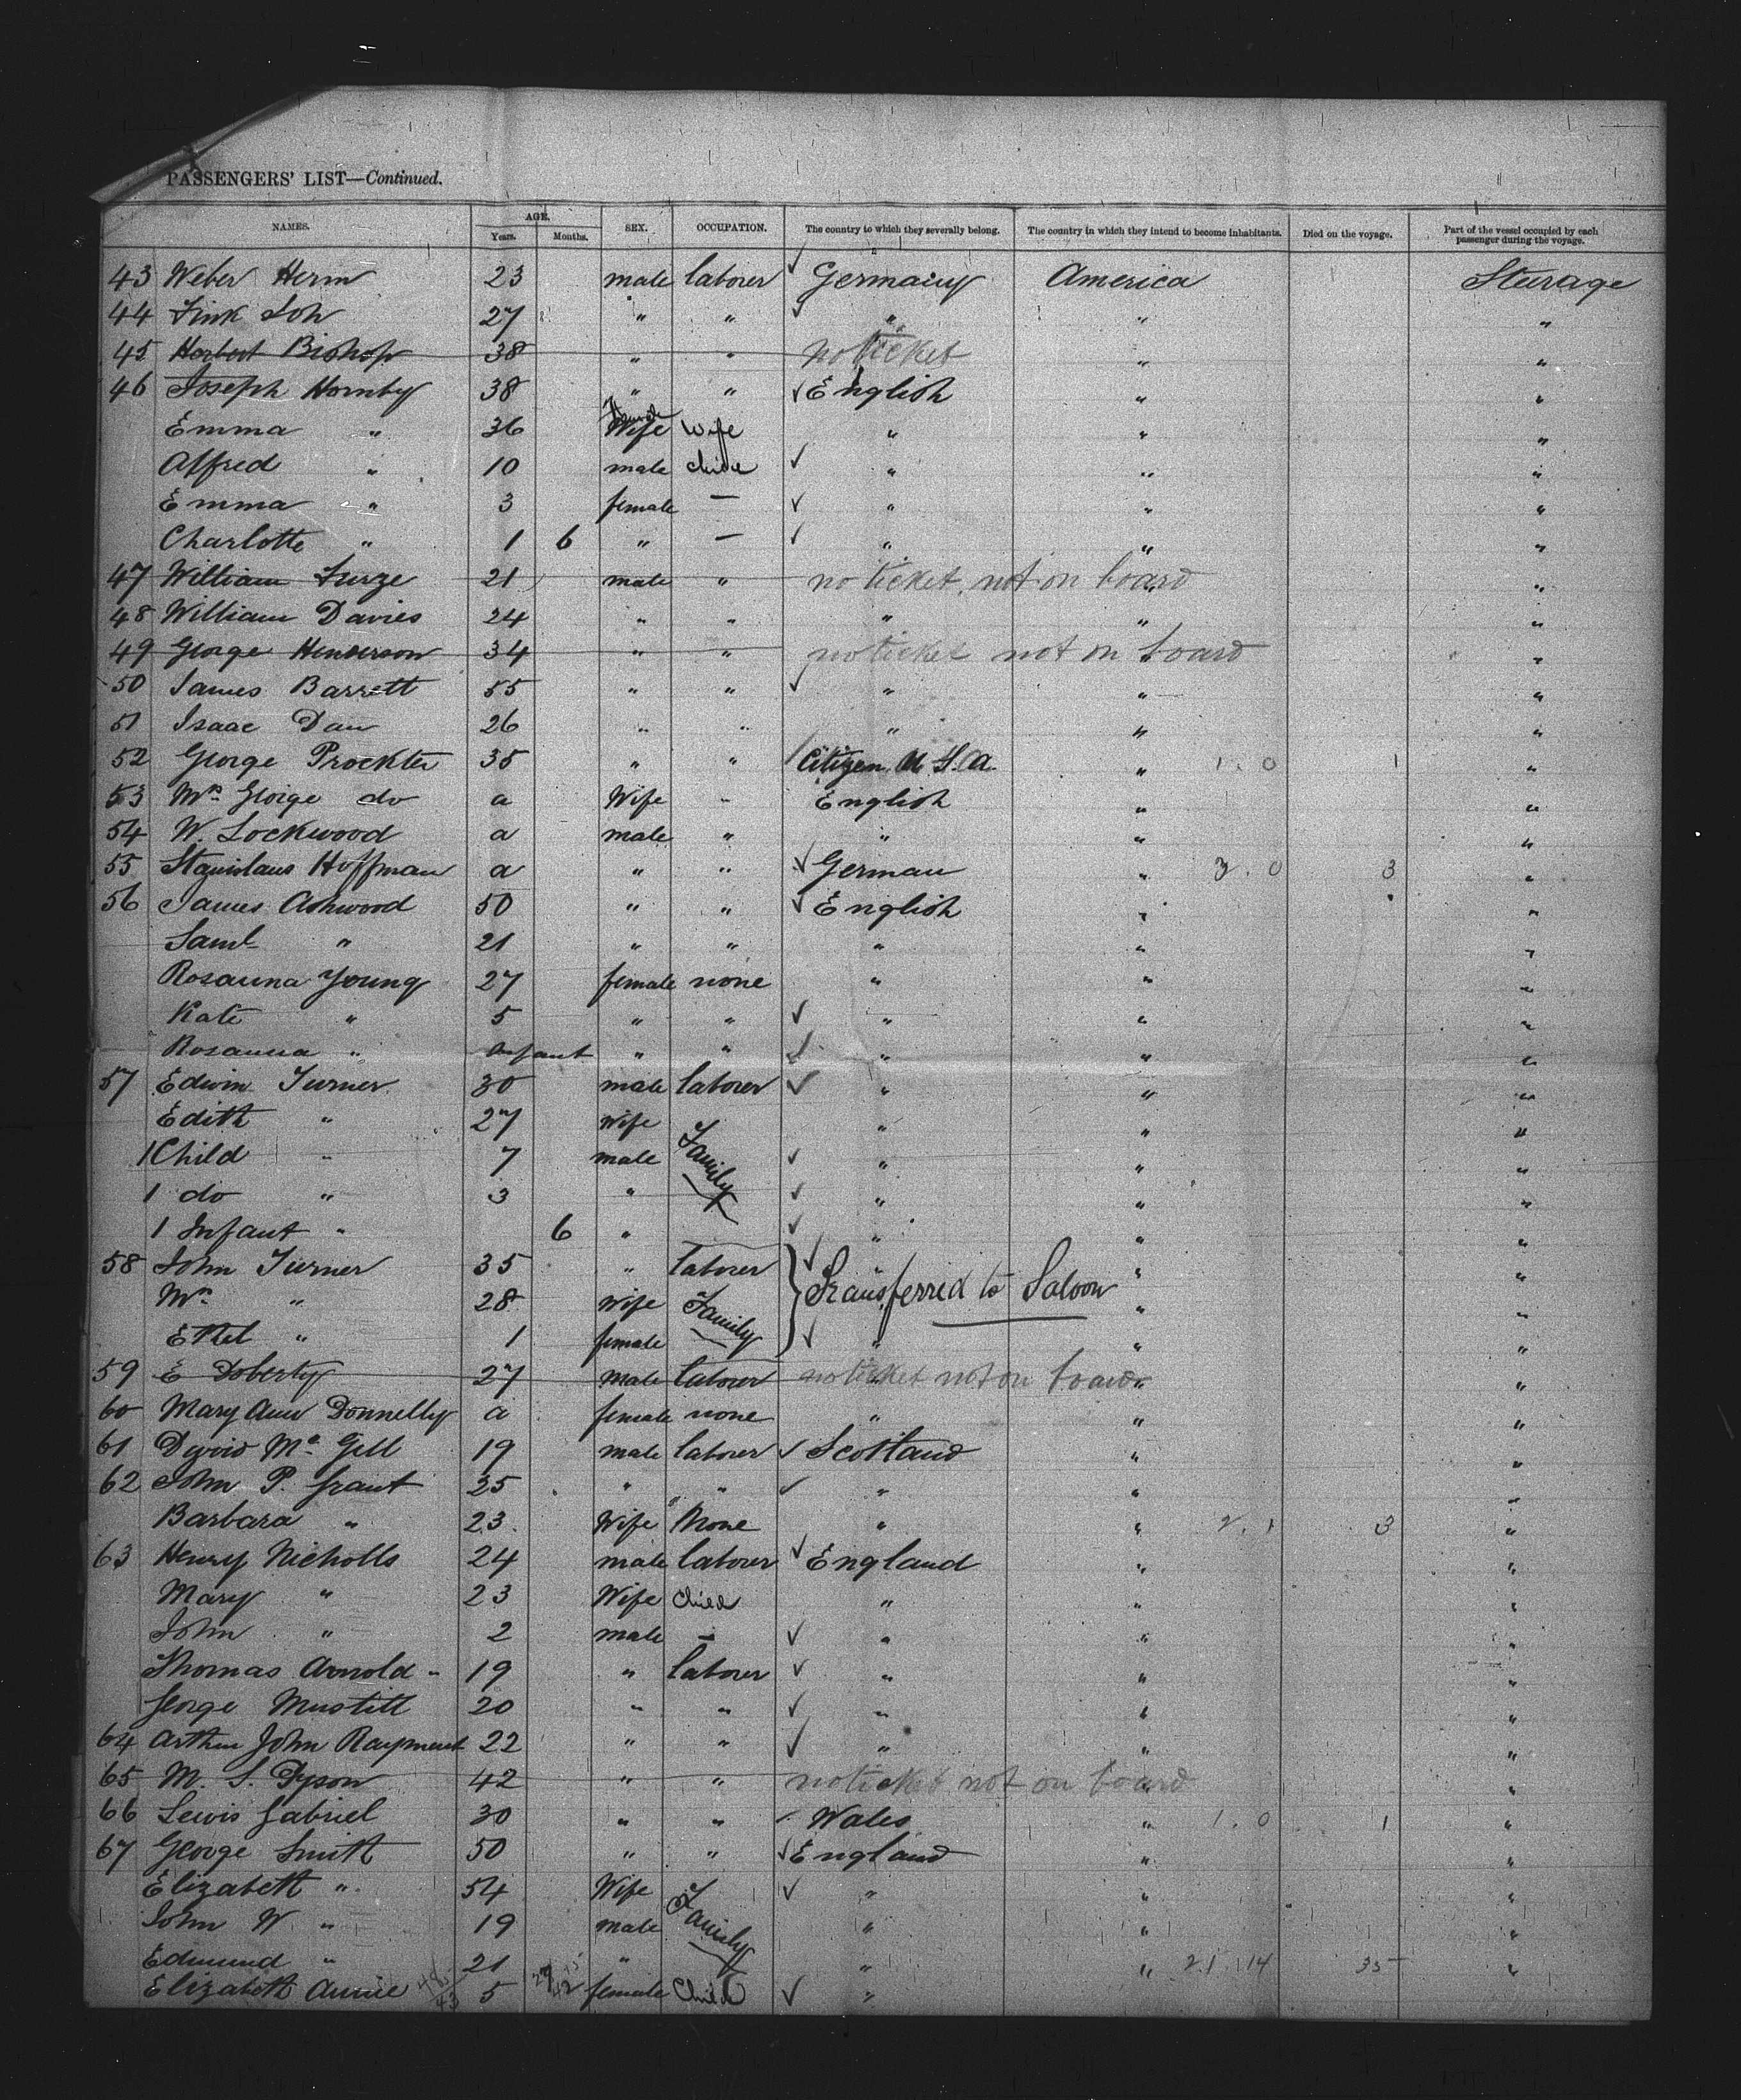 PASSENGERS' LIST—Continued.
NAMES. AGE. Years. Months. SEX. OCCUPATION. The country to which they severally belong. The country in which they intend to become inhabitants. Died on the voyage. Part of the vessel occupied by each passenger during the voyage.
43 Weber Herm 23 male laborer ✓ Germany America Steurage
44 Fink Joh 27 " " ✓ " " "
45 Herbert Bishop 38 " " no ticket " "
46 Joseph Hornby 38 " " ✓ English " "
Emma " 36 Wife Wife " " "
Alfred " 10 male child ✓ " " "
Emma " 3 female — ✓ " " "
Charlotte " 1 6 " — ✓ " " "
47 William Furze 21 male " no ticket, not on board " "
48 William Davies 24 " " " " "
49 George Henderson 34 " " no ticket not on board " "
50 James Barrett 55 " " ✓ " " "
51 Isaac Daw 26 " " " " "
52 George Prockter 35 " " Citizen U.S.A. " 1.0 1 "
53 Mrs George do a Wife " English " "
54 W. Lockwood a male " " " "
55 Stanislaus Hoffman a " " ✓ German " 3.0 3 "
56 James Ashwood 50 " " ✓ English " "
Saml " 21 " " " " "
Rosanna Young 27 female none " " "
Kate " 5 " " ✓ " " "
Rosanna " Infant " " ✓ " " "
57 Edwin Turner 30 male laborer ✓ " " "
Edith " 27 wife Family " " "
1 Child " 7 male ✓ " " "
1 do " 3 " ✓ " " "
1 Infant " 6 " ✓ " " "
58 John Turner 35 " laborer ✓ " " "
Mrs " 28 wife Family Transferred to Saloon " "
Ethel " 1 female ✓ " " "
59 E Doherty 27 male laborer no ticket not on board " "
60 Mary Ann Donnelly a female none " " "
61 David Mc Gill 19 male laborer ✓ Scotland " "
62 John P. Grant 25 " " ✓ " " "
Barbara " 23 Wife None " " 2.1 3 "
63 Henry Nicholls 24 male laborer ✓ England " "
Mary " 23 Wife Child " " "
John " 2 male — ✓ " " "
Thomas Arnold " 19 " laborer ✓ " " "
George Mustill 20 " " ✓ " " "
64 Arthur John Rayment 22 " " ✓ " " "
65 M. S. Dyson 42 " " no ticket not on board " "
66 Lewis Gabriel 30 " " ✓ Wales " 1.0 1 "
67 George Smith 50 " " ✓ England " "
Elizabeth " 54 Wife Family ✓ " " "
John W. " 19 male " " "
Edmund " 21 " " " 21.14 35 "
Elizabeth Annie 5 female Child ✓ "